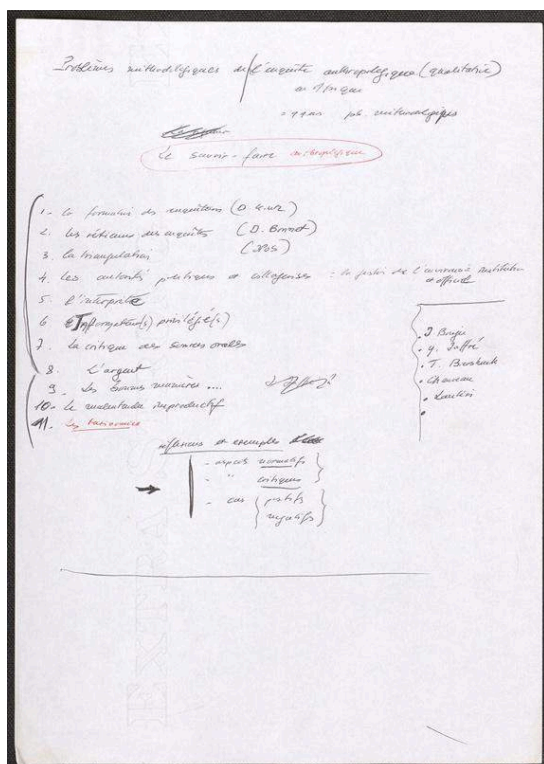 Problèmes méthodologiques de l'enquête anthropologique (qualitative)
en Afrique
Le savoir-faire anthropologique
1. La formation des enquêteurs (D. )
2. Les réticences des enquêtés (D. Bonnet)
3. La triangulation (JPOS)
4. Les autorités politiques et villageoises : la gestion de l'
5. L'interprète
6 Informateur(s) privilégié(s)
7. La critique des sources orales
8. L'argent
9. Les bonnes manières ....
10. Le malentendu improductif
11. Les
. Y. Jaffré
. T. Bierschenk
. Chauveau
références et exemples
- aspects normatifs
- " critiques
- cas positifs
négatifs
EXTRA